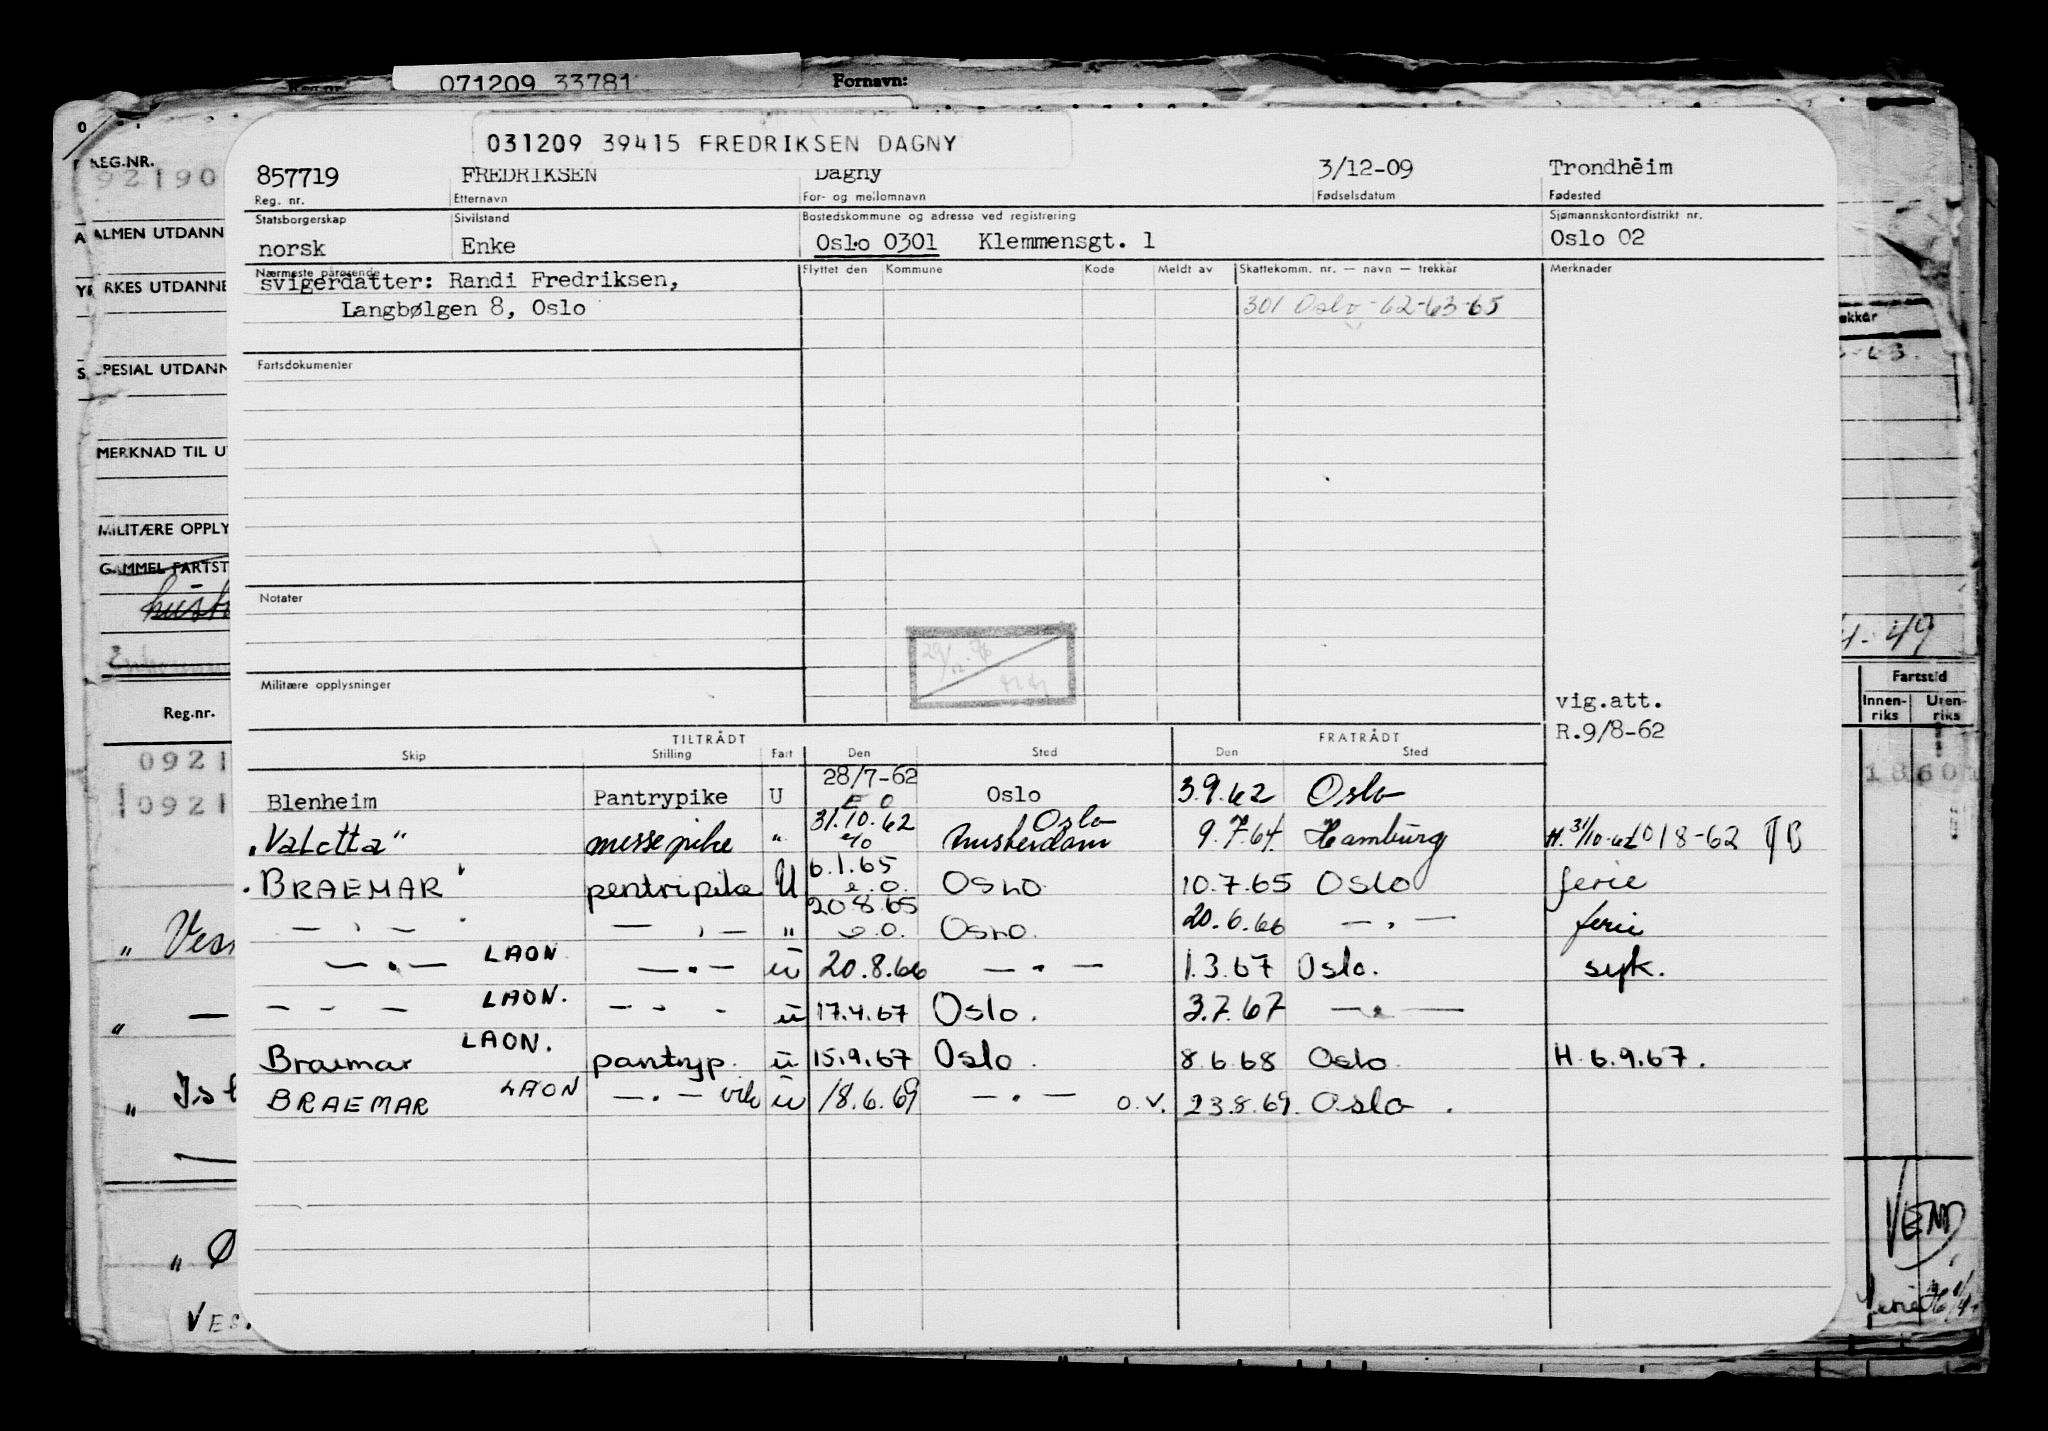 071209 33781 Fornavn:
031209 39415 FREDRIKSEN DAGNY
857719 FREDRIKSEN Dagny 3/12-09 Trondheim
Reg. nr. Etternavn For- og mellomnavn Fødselsdatum Fødested
Statsborgerskap Sivilstand Bostedskommune og adresse ved registrering Sjømannskontordistrikt nr.
norsk Enke Oslo 0301 Klemmensgt. 1 Oslo 02
Nærmeste pårørende Flyttet den Kommune Kode Meldt av Skattekomm. nr. — navn — trekkår Merknader
svigerdatter: Randi Fredriksen,
Langbølgen 8, Oslo 301 Oslo-62-63-65
Fartsdokumenter
Notater
Militære opplysninger
vig.att.
R.9/8-62
TILTRÅDT FRATRÅDT
Skip Stilling Fart Den Sted Den Sted
Blenheim Pantrypike U 28/7-62 E O Oslo 3.9.62 Oslo
"Valetta" messepike " 31.10.62 Oslo 9.7.64 Hamburg H. 31/10-62 018-62
"BRAEMAR" pentripike U 6.1.65 e.o. OSLO 10.7.65 Oslo ferie
— " — — " — " 20.8.65 e.o. OSLO. 20.6.66 — " — ferie
— " — LAON — " — u 20.8.66 — " — 1.3.67 Oslo. syk.
— " — LAON. — " — u 17.4.67 Oslo. 3.7.67 — " —
Braemar LAON. pantryp. u 15.9.67 Oslo. 8.6.68 Oslo H. 6.9.67.
BRAEMAR LAON — " — vik u 18.6.69 — " — O.V. 23.8.69. Oslo.
REG.NR.
92190
ALMEN UTDANN
YRKES UTDANNE
SPESIAL UTDANN
MERKNAD TIL U
MILITÆRE OPPLY
GAMMEL FARTST
Reg.nr.
0921
0921
" Ves
" —
" Ist
" Ø
VES.
4-49
Fartstid
Innen-riks Uten-riks
1860
VEND